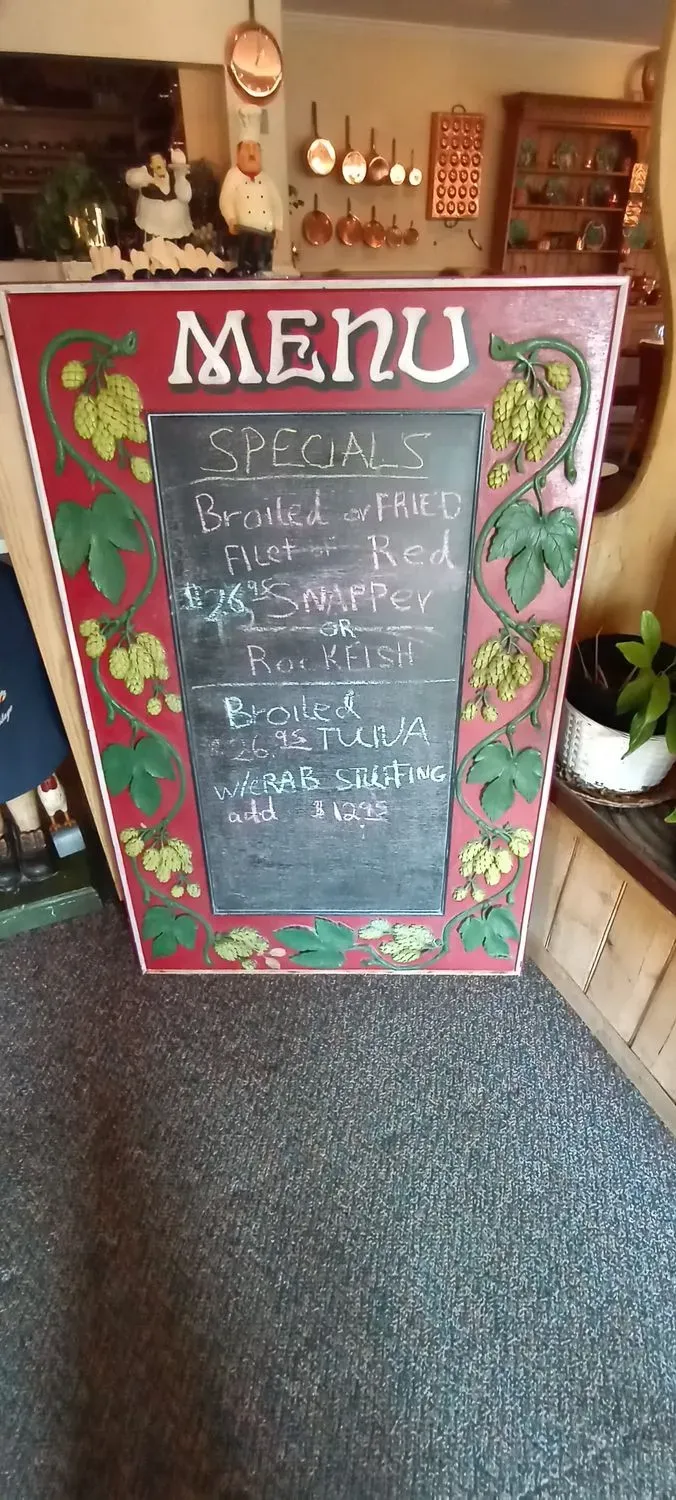 MENU
SPECIALS
Broiled or FRIED
Filet of Red
$26.95 SNAPPer
OR
RocKFISH
Broiled
$26.95 TUNA
w/CRAB STUFFING
add $12.95